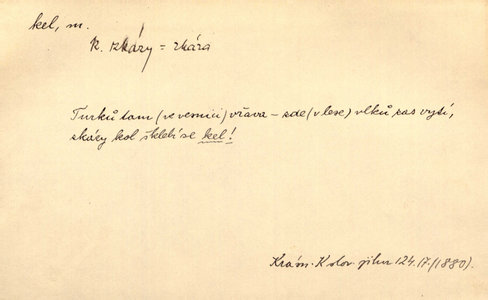 kel, m.
k. zkázy = zkáza
Turků tam (ve vesnici) vřava – zde (v lese) vlků zas vytí,
zkázy kol šklebí se kel!
Krásn. K slov. jihu 124.17. (1880).